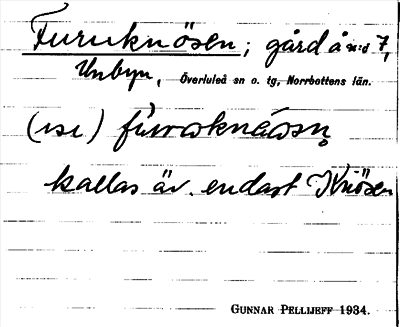 Furuknösen; gård å n:o 7,
Unbyn, Överluleå sn o. tg, Norrbottens län.
(ɪsɪ)
kallas äv. endast Knösen
GUNNAR PELLIJEFF 1934.